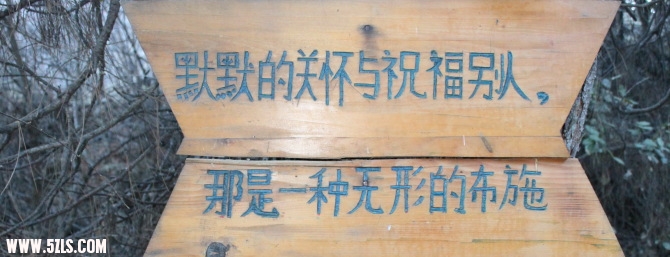 默默的关怀与祝福别人，
那是一种无形的布施
WWW.5ZLS.COM